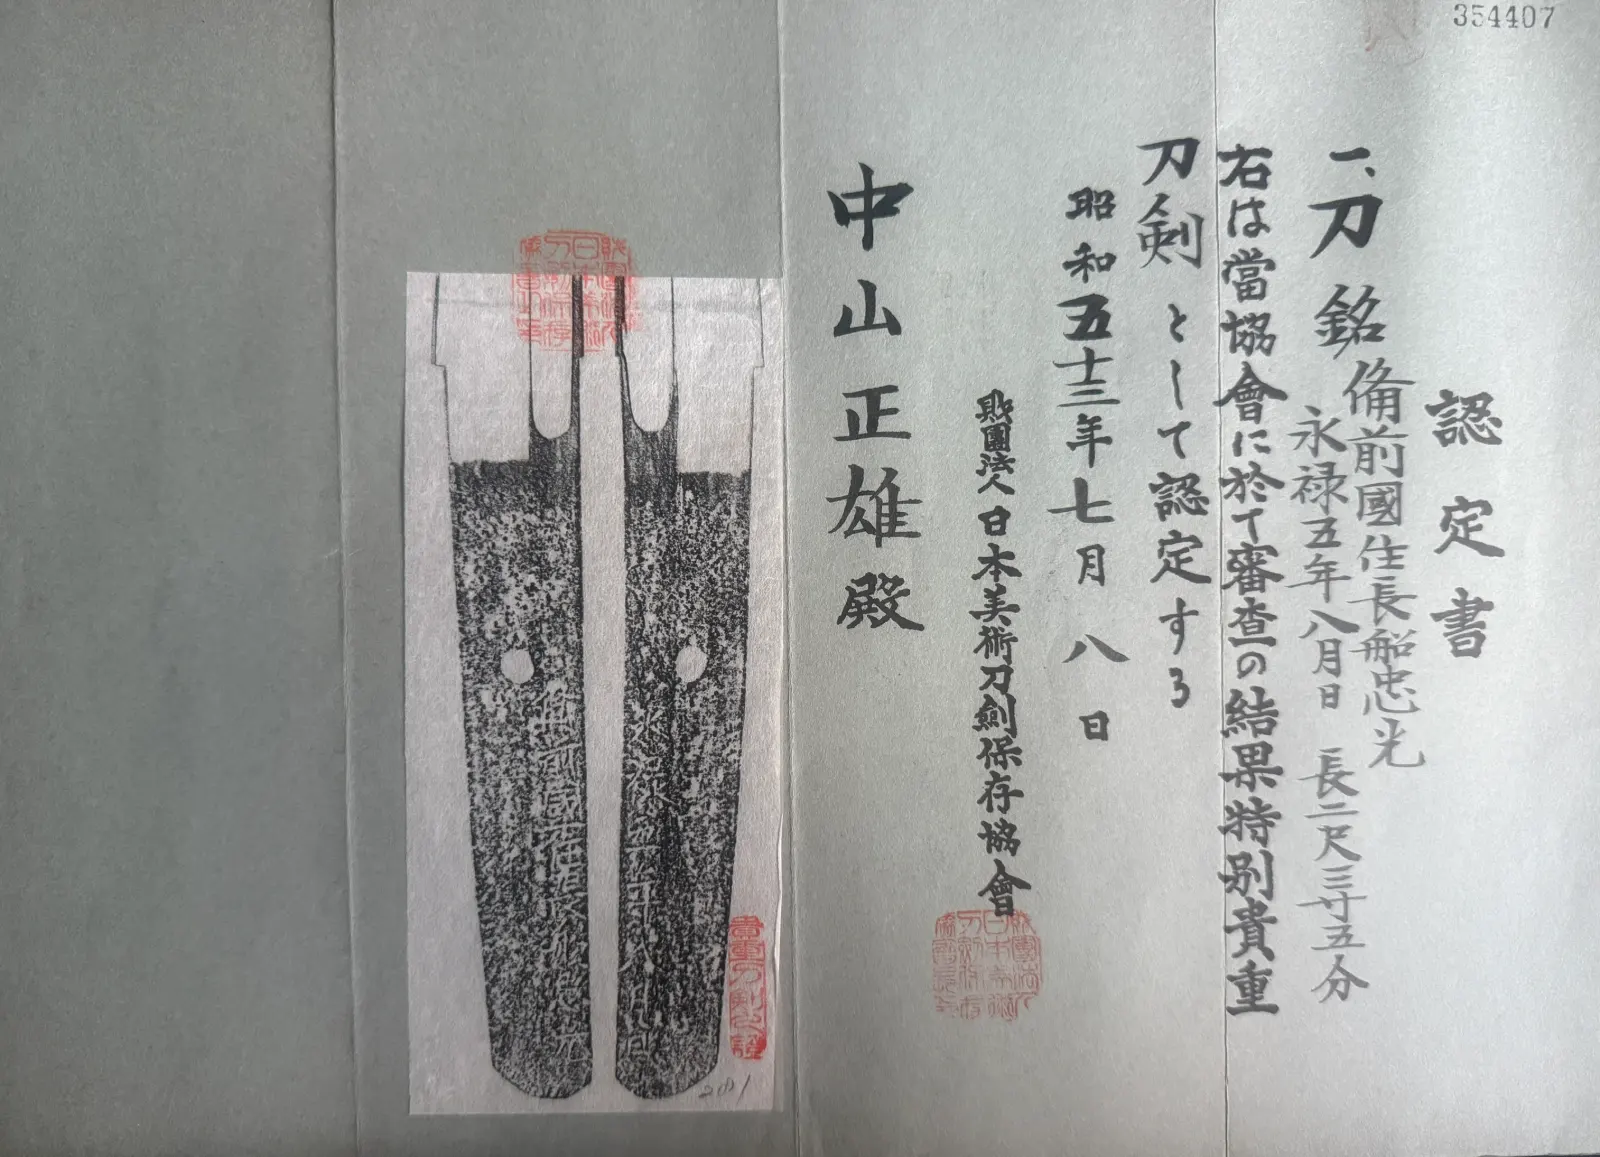 354407
認定書
一、刀 銘 備前國住長船忠光
永禄五年八月日 長二尺三寸五分
右は當協會に於て審査の結果特別貴重
刀剣として認定する
昭和五十三年七月八日
財團法人日本美術刀劍保存協會
中山正雄殿
永禄五年八月日
備前國住長船忠光